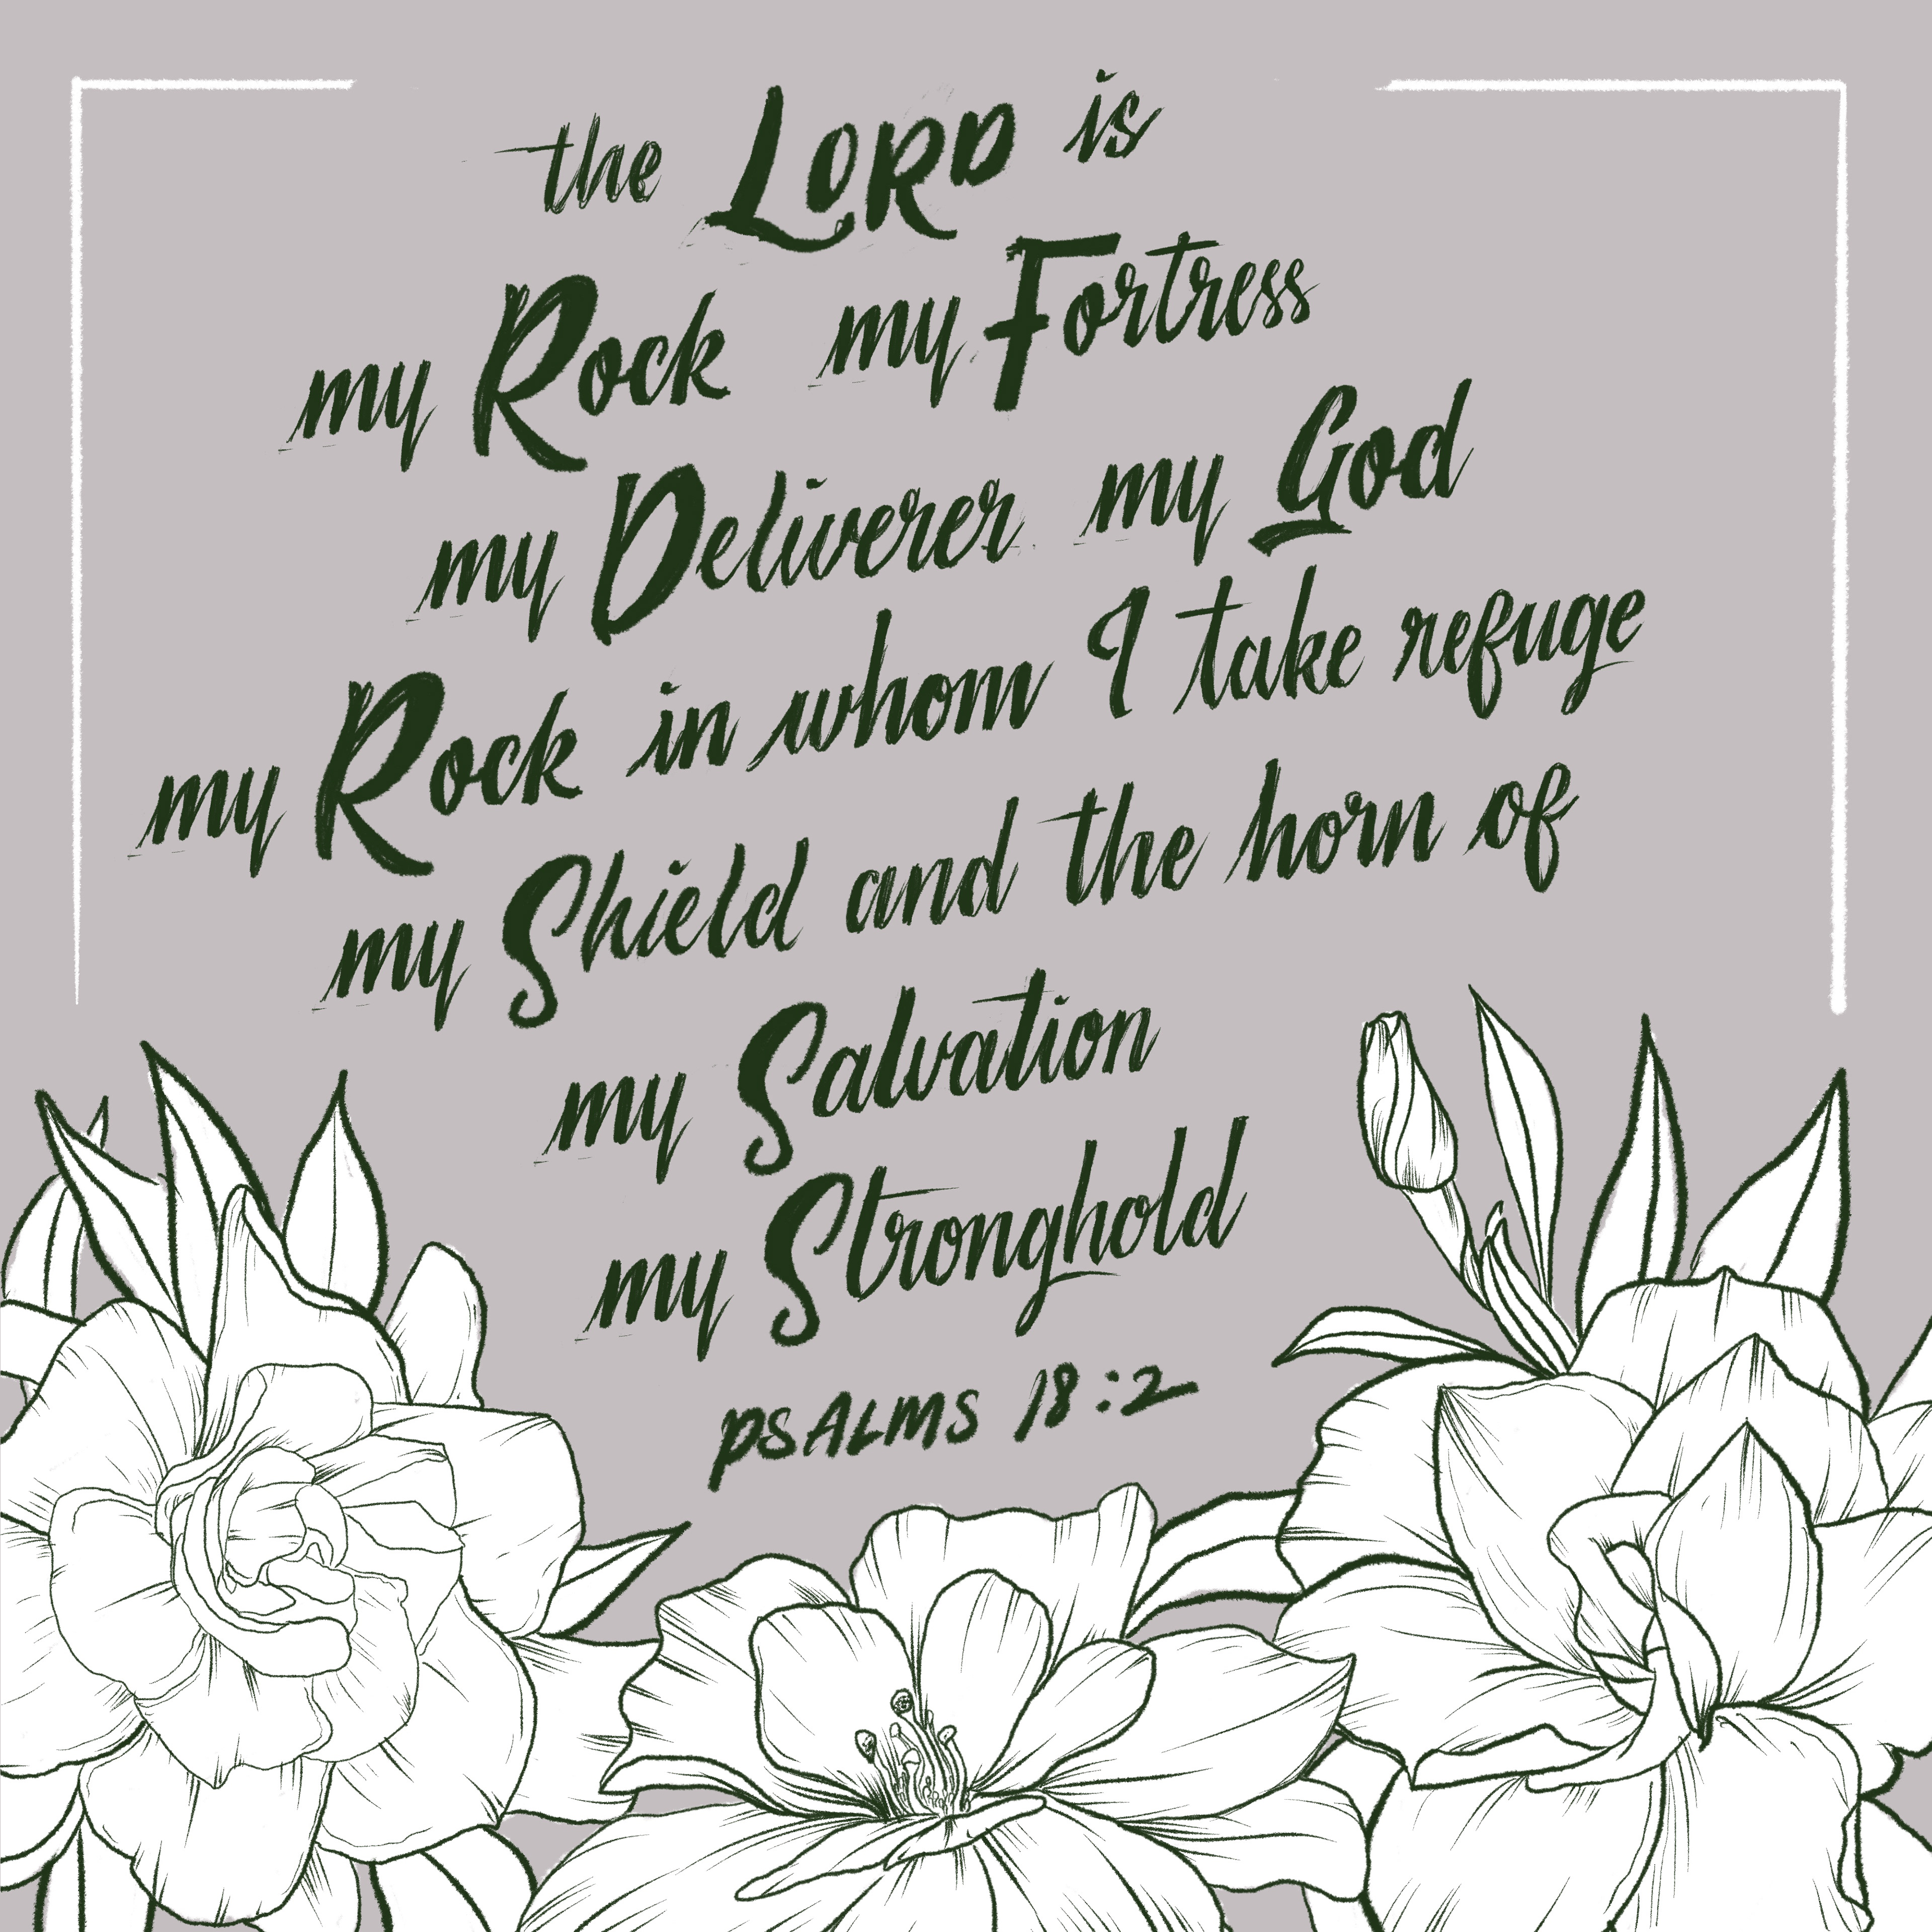 the LORD is
my Rock my Fortress
my Deliverer my God
my Rock in whom I take refuge
my Shield and the horn of
my Salvation
my Stronghold
PSALMS 18:2